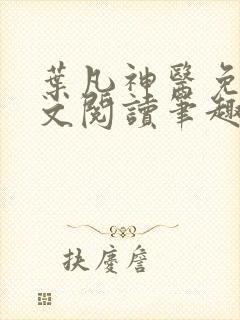 葉凡神醫免
文閱讀筆趣
扶慶詹